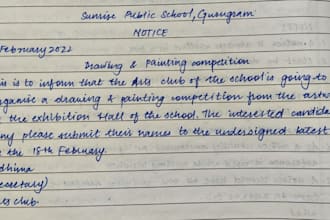 Sunrise Public School, Gurugram
NOTICE
February 2022
Drawing & Painting competition
is is to inform that the Arts club of the school is going to
organise a drawing & painting competition from the
the exhibition Hall of the school. The interested candida
may please submit their names to the undersigned latest
the 15th February.
dhima
ecretary)
club